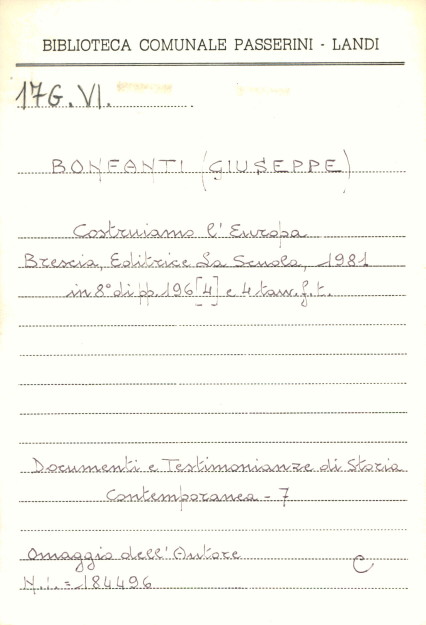 BIBLIOTECA COMUNALE PASSERINI - LANDI
17G.VI.
BONFANTI (GIUSEPPE)
Costruiamo l'Europa
Brescia, Editrice La Scuola, 1981
in 8° di pp. 196[4] e 4 tav. f. t.
Documenti e Testimonianze di Storia
Contemporanea - 7
Omaggio dell'Autore
C
N.i. = 184496